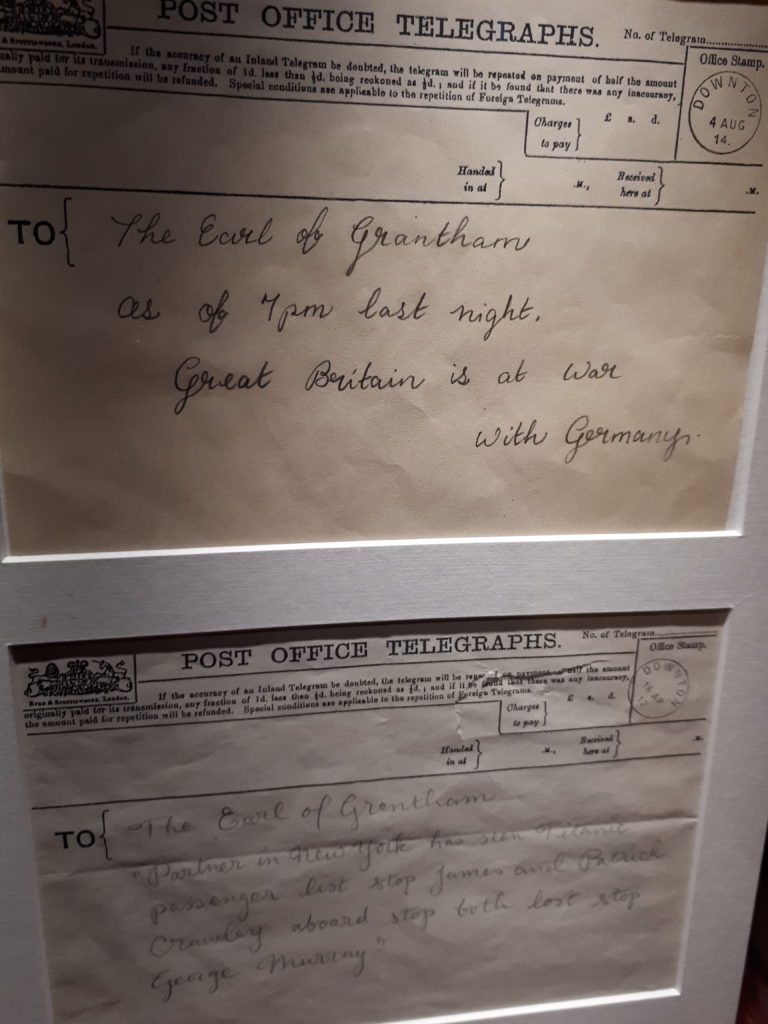 POST OFFICE TELEGRAPHS.
No. of Telegram
& Spottiswoode, London.
If the accuracy of an Inland Telegram be doubted, the telegram will be repeated on payment of half the amount
ally paid for its transmission, any fraction of 1d. less than ½d. being reckoned as ½d.; and if it be found that there was any inaccuracy,
mount paid for repetition will be refunded. Special conditions are applicable to the repetition of Foreign Telegrams.
Office Stamp.
DOWNTON
4 AUG
14.
Charges
to pay
£ s. d.
Handed
in at
.M.,
Received
here at
.M.
TO
The Earl of Grantham
as of 7pm last night.
Great Britain is at war
with Germany.
POST OFFICE TELEGRAPHS.
No. of Telegram
Eyre & Spottiswoode, London.
If the accuracy of an Inland Telegram be doubted, the telegram will be repeated on payment half the amount
originally paid for its transmission, any fraction of 1d. less than ½d. being reckoned as ½d.; and if it be found that there was any inaccuracy,
the amount paid for repetition will be refunded. Special conditions are applicable to the repetition of Foreign Telegrams.
Office Stamp.
DOWNTON
16 AP
12
Charges
to pay
£ s. d.
Handed
in at
.M.,
Received
here at
.M.
TO
The Earl of Grantham
"Partner in New York has seen Titanic
passenger list stop James and Patrick
Crawley aboard stop both lost stop
George Murray"